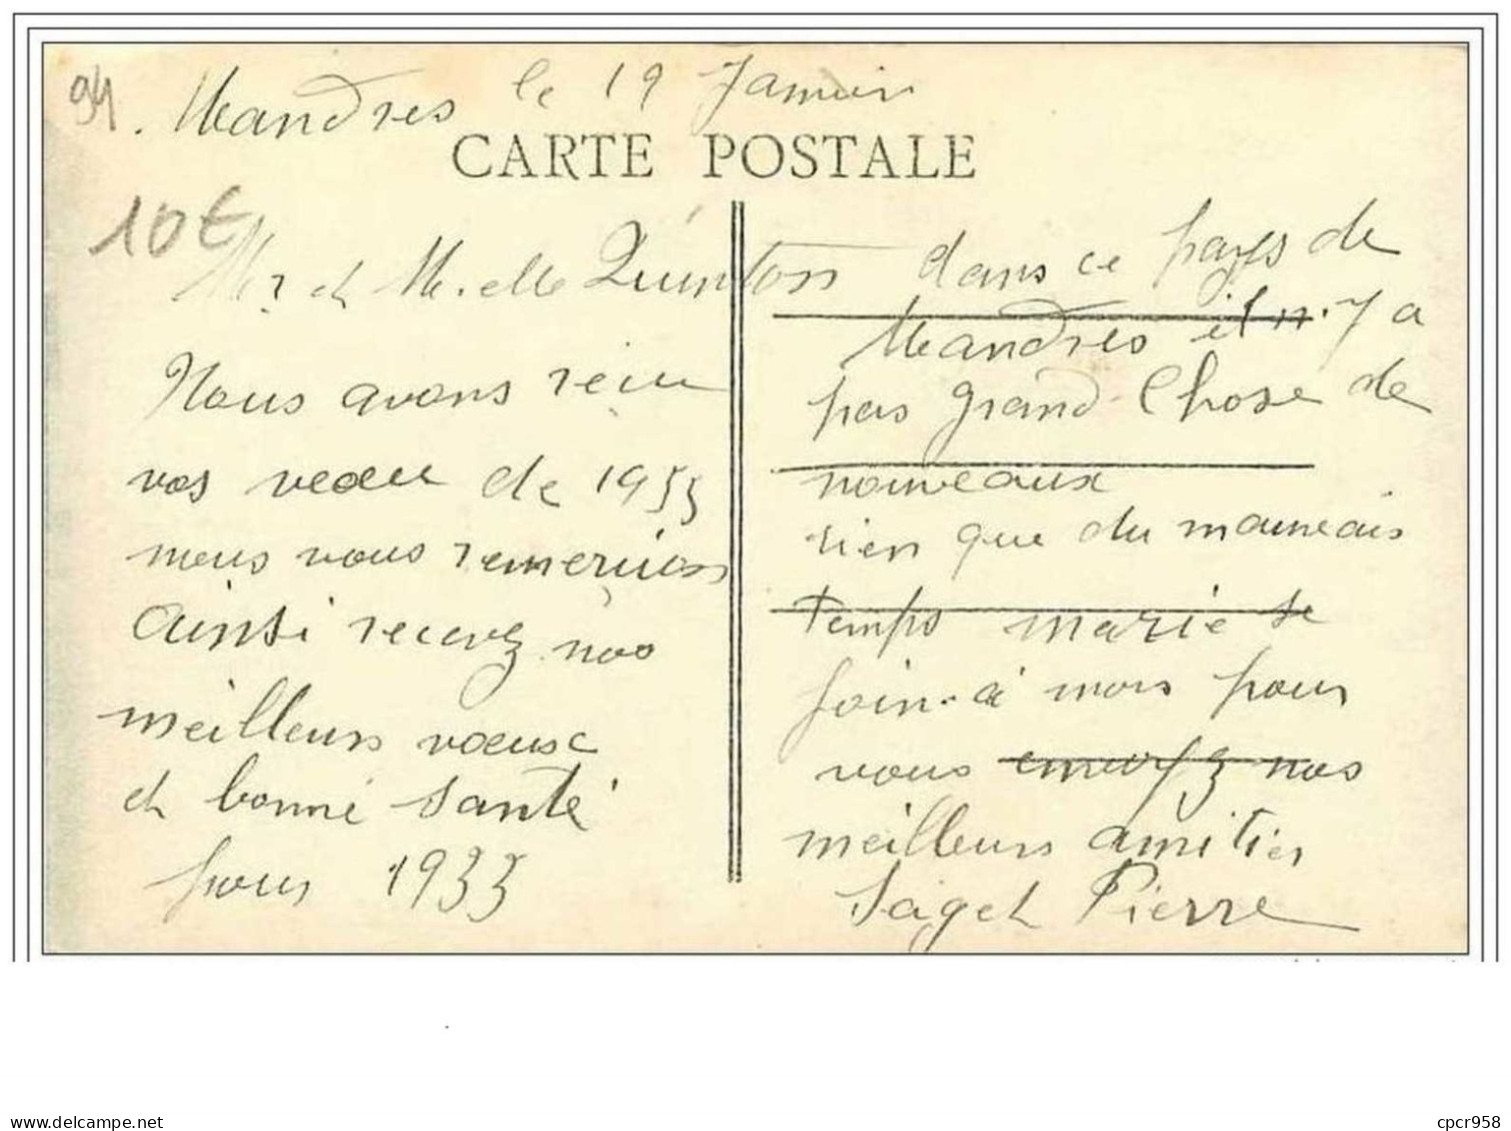 94. Mandres le 19 Janvier
CARTE POSTALE
10€
Mr et M.elle Quinton
Nous avons recu
vos veaeu de 1933
nous vous remerçions
ainsi recevez nos
meilleurs voeuse
et bonne santé
pour 1933
dans ce pays de
Mandres il n.y a
pas grand Chose de
nouveaux
rien que du mauvais
temps marie se
join-à mois pour
vous envoyez nos
meilleurs amitiés
Saget Pierre
www.delcampe.net
cpcr958